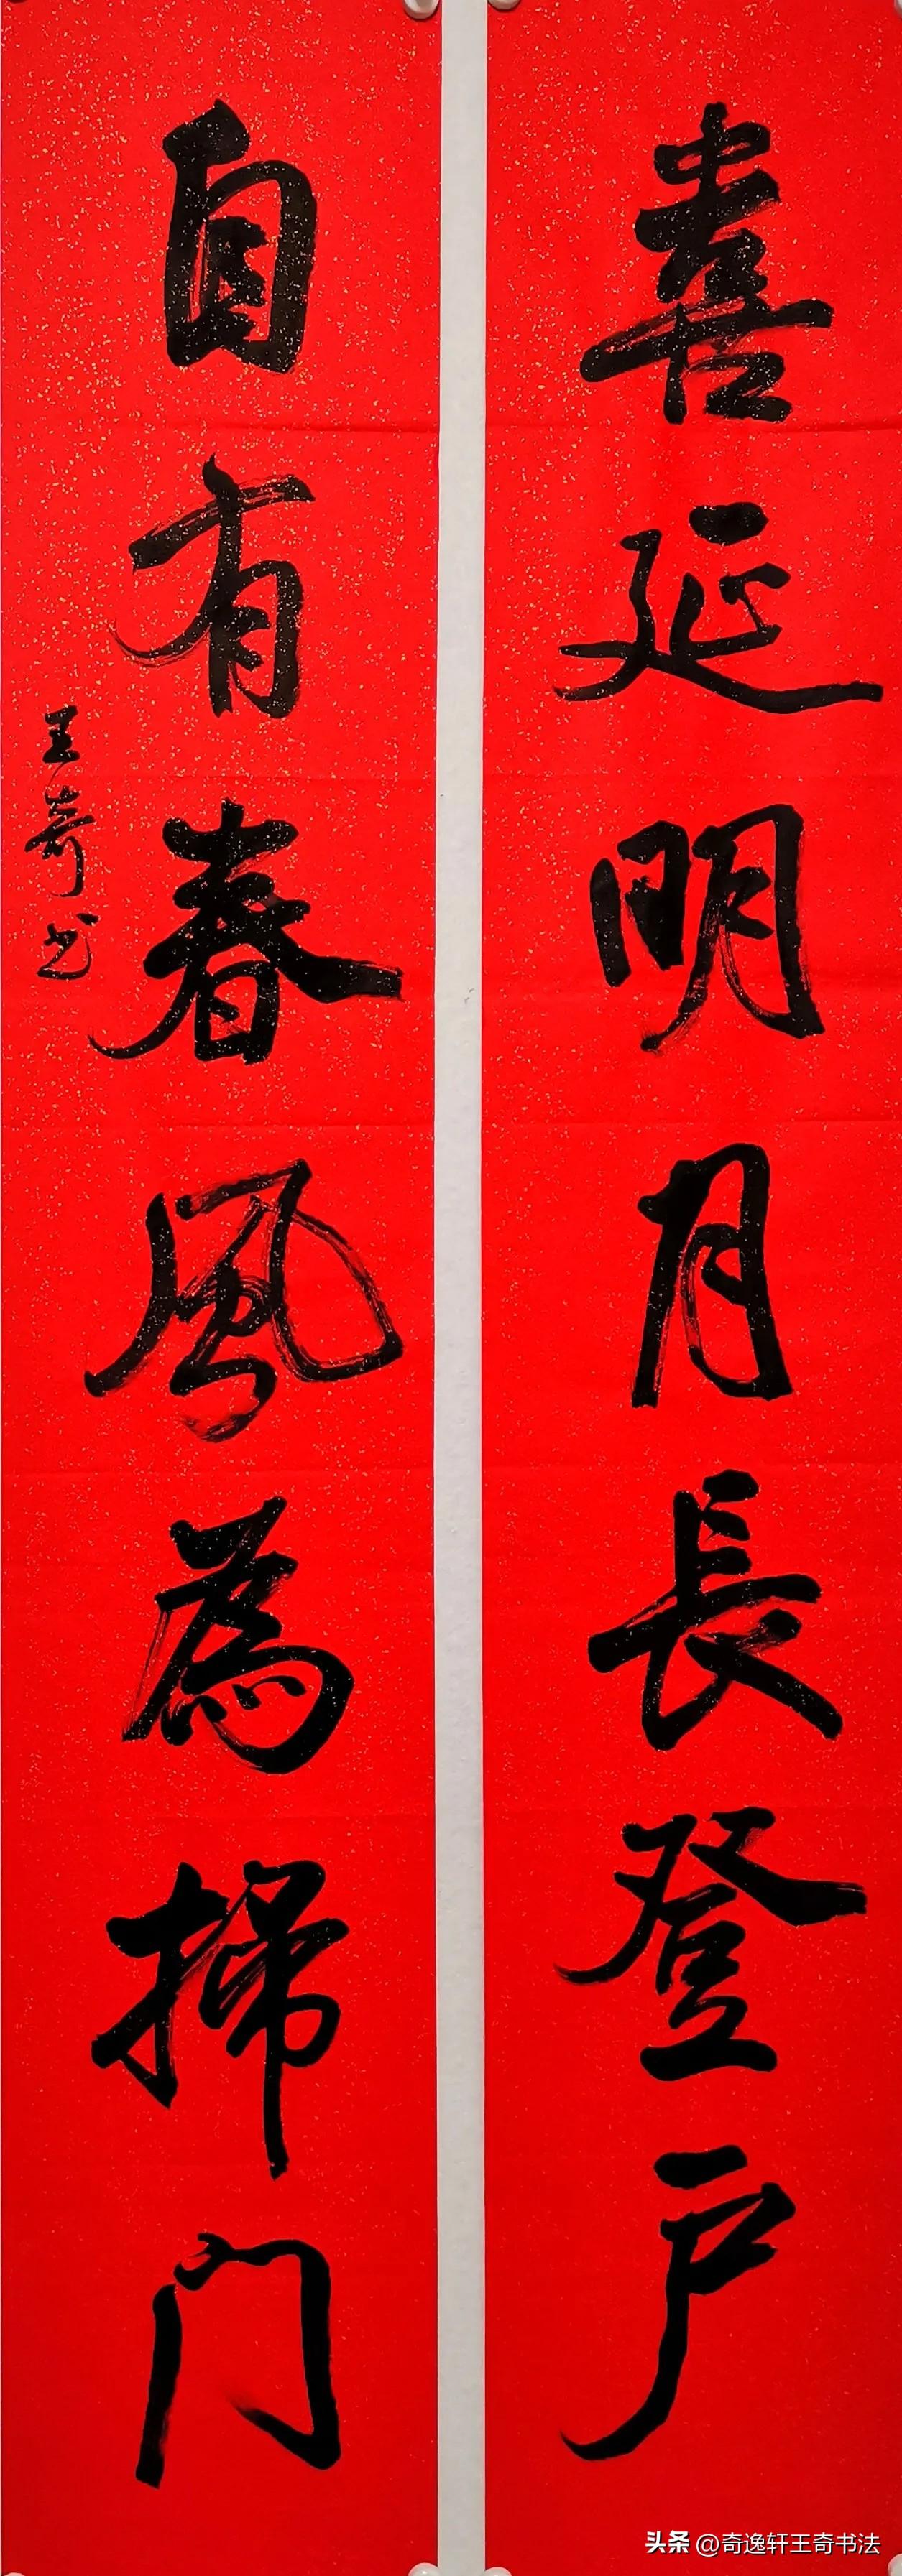 喜延明月長登户
自有春風為掃门
王奇书
头条 @奇逸轩王奇书法